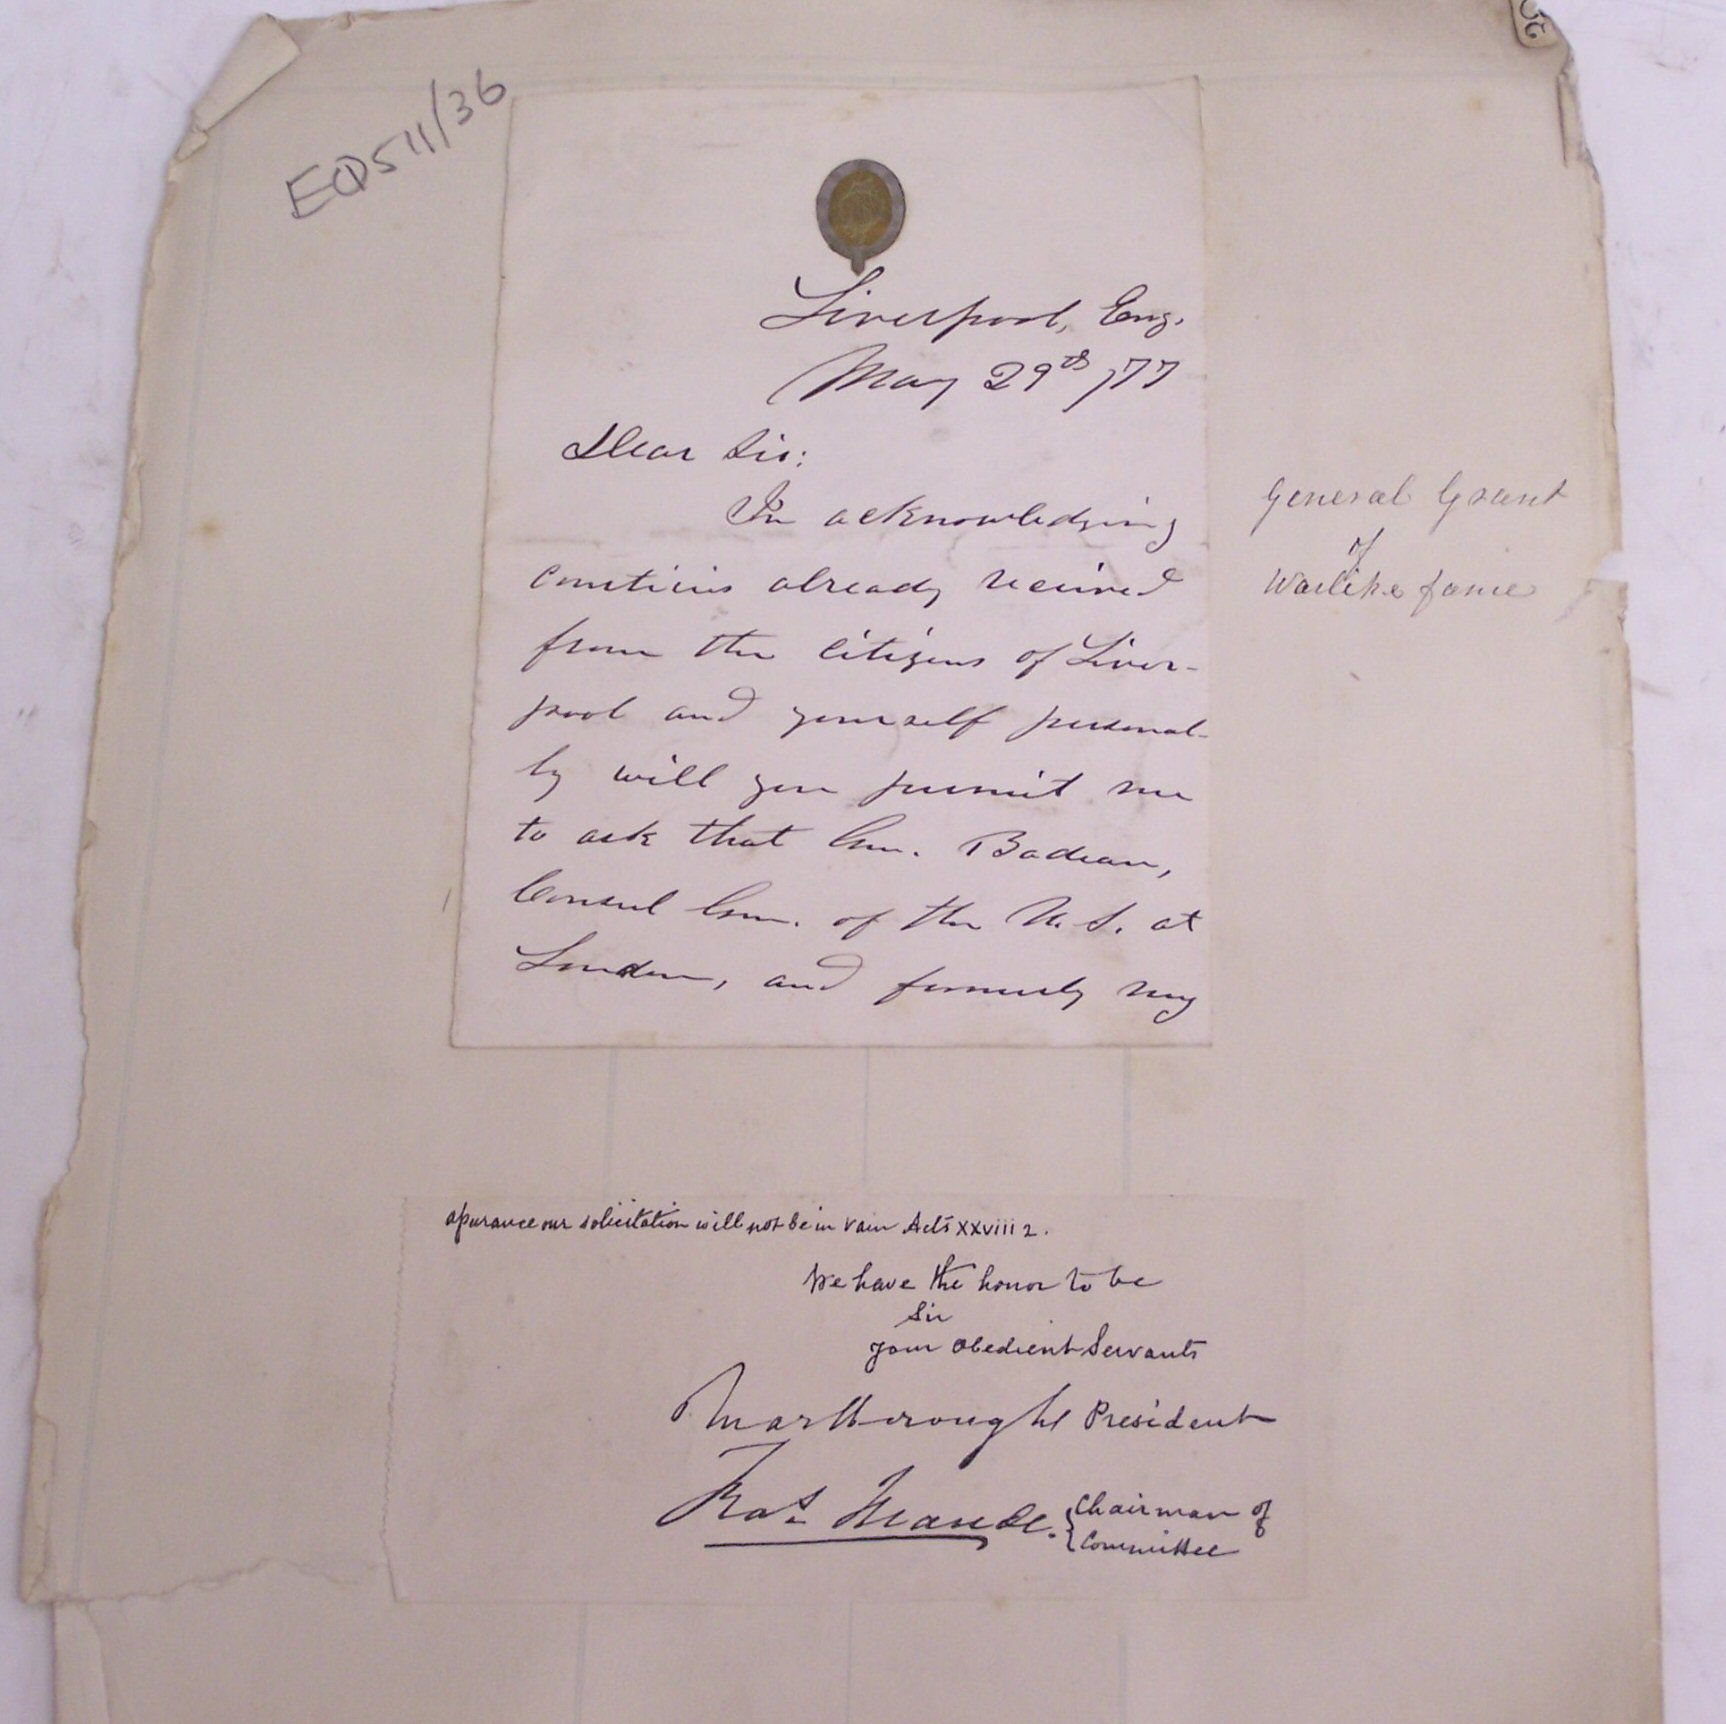 EQ511/36
Liverpool, Eng.
May 29th /77
Dear Sir:
In acknowledging
courticies already received
from the citizens of Liver-
pool and yourself personal-
ly will you permit me
to ask that Gen. Badeau,
Consul Gen. of the U. S. at
London, and formerly my
General Grant
of
Warlike fame
apurance our solicitation will not be in vain Acts XXVIII 2.
We have the honor to be
Sir
your Obedient Servants
Marlborough President
Maude. Chairman of
Committee